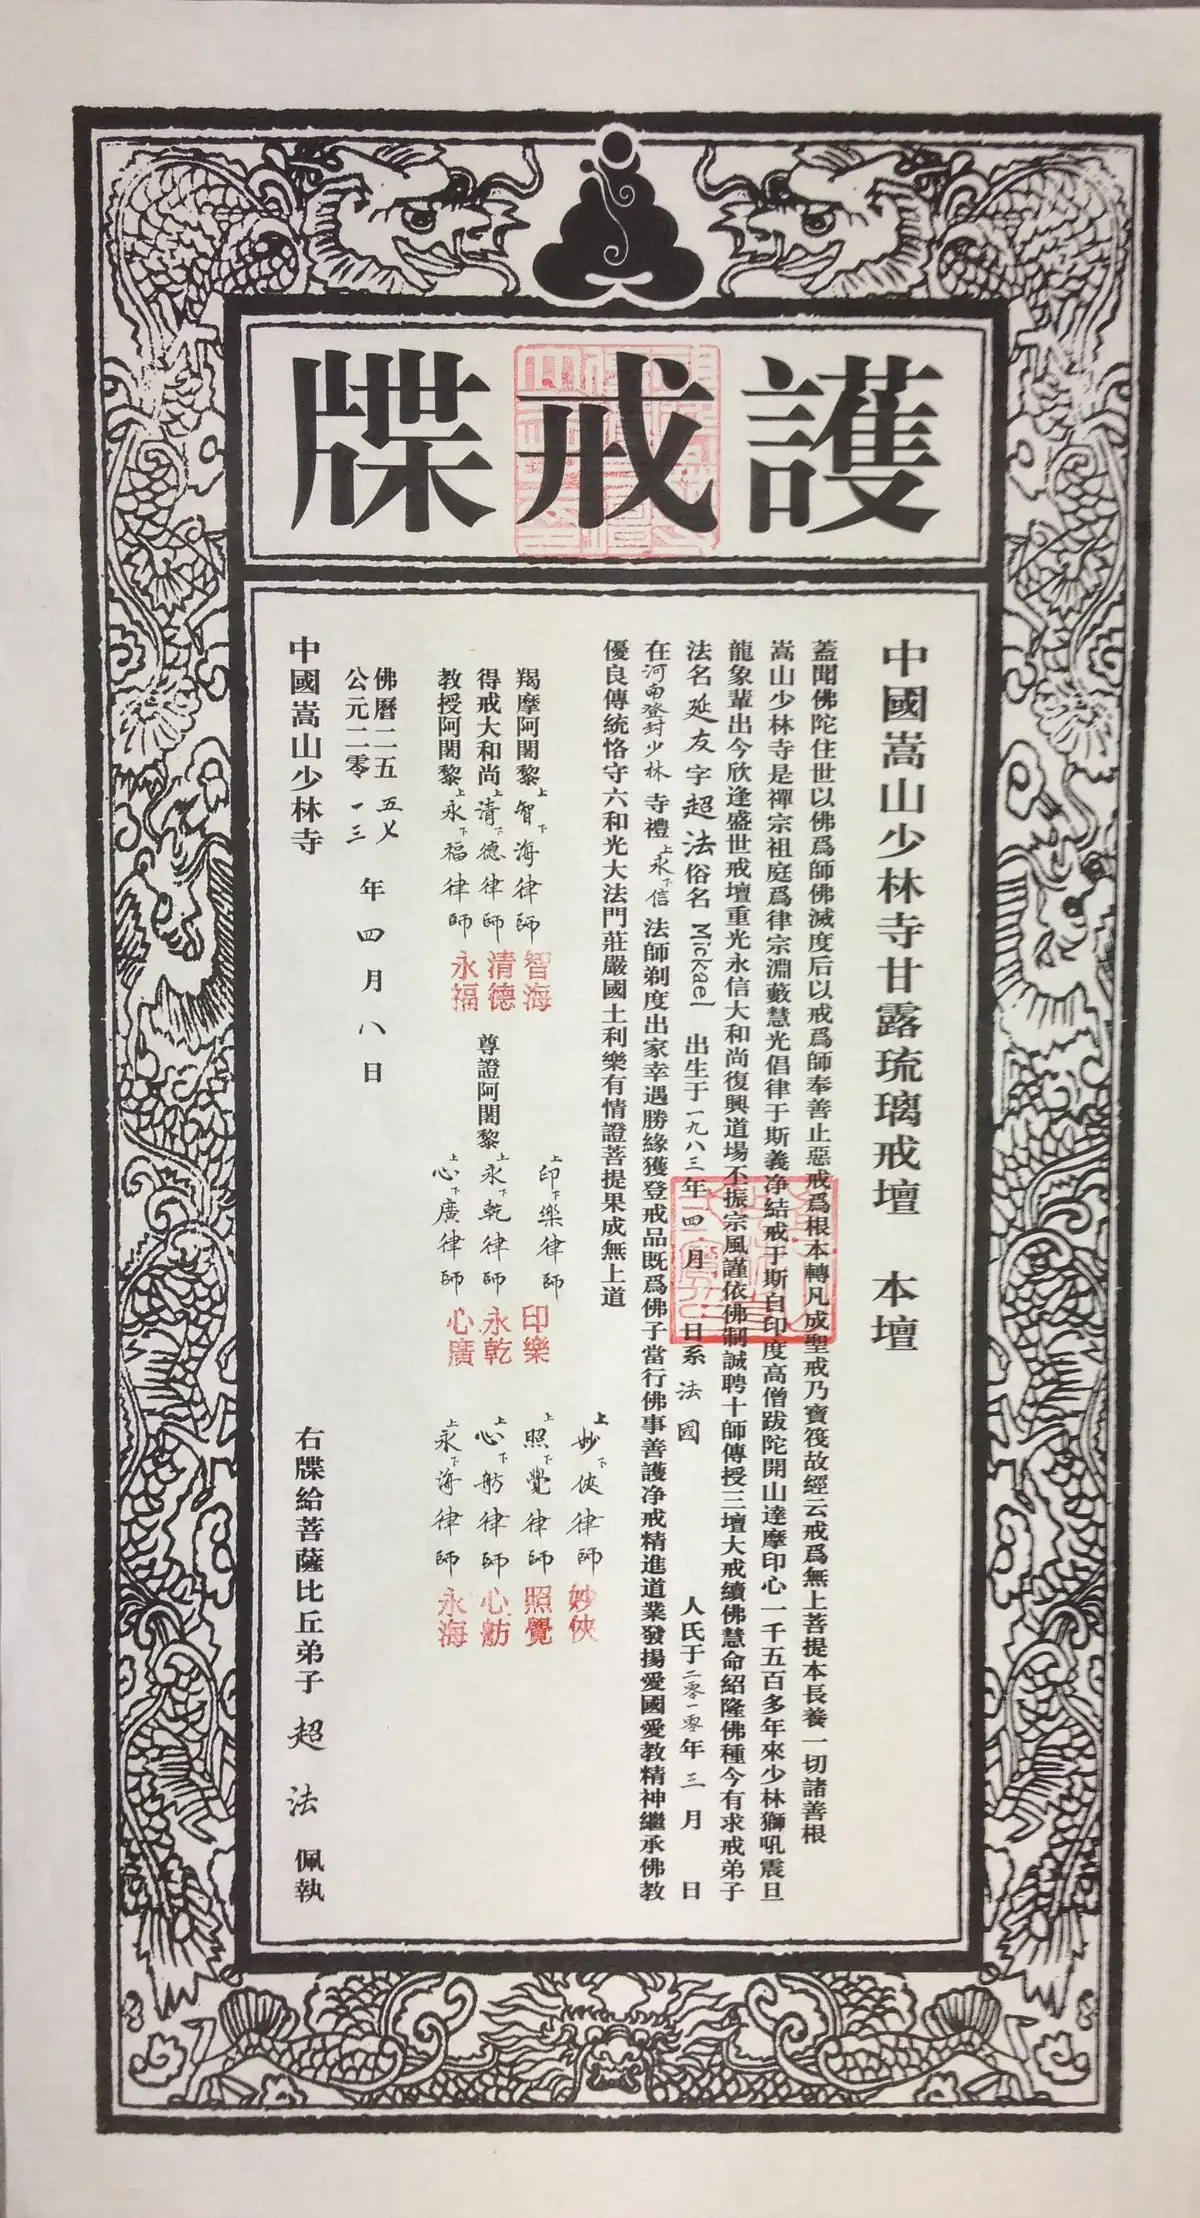 護戒牒
中國嵩山少林寺甘露琉璃戒壇 本壇
蓋聞佛陀住世以佛爲師佛滅度后以戒爲師奉善止惡戒爲根本轉凡成聖戒乃寶筏故經云戒爲無上菩提本長養一切諸善根
嵩山少林寺是禪宗祖庭爲律宗淵藪慧光倡律于斯義净結戒于斯自印度高僧跋陀開山達摩印心一千五百多年來少林獅吼震旦
龍象輩出今欣逢盛世戒壇重光永信大和尚復興道場不振宗風謹依佛制誠聘十師傳授三壇大戒續佛慧命紹隆佛種今有求戒弟子
法名延友字超法俗名Mickael 出生于一九八三年四月 日系法國 人氏于二零一零年三月 日
在河南登封少林寺禮上永下信法師剃度出家幸遇勝緣獲登戒品既爲佛子當行佛事善護净戒精進道業發揚愛國愛教精神繼承佛教
優良傳統恪守六和光大法門莊嚴國土利樂有情證菩提果成無上道
羯摩阿闍黎上智下海律師 智海
得戒大和尚上清下德律師 清德
教授阿闍黎上永下福律師 永福
尊證阿闍黎
上印下樂律師 印樂
上永下乾律師 永乾
上心下廣律師 心廣
上妙下俠律師 妙俠
上照下覺律師 照覺
上心下舫律師 心舫
上永下海律師 永海
佛曆二五五七
公元二零一三
年四月八日
中國嵩山少林寺
右牒給菩薩比丘弟子超法佩執